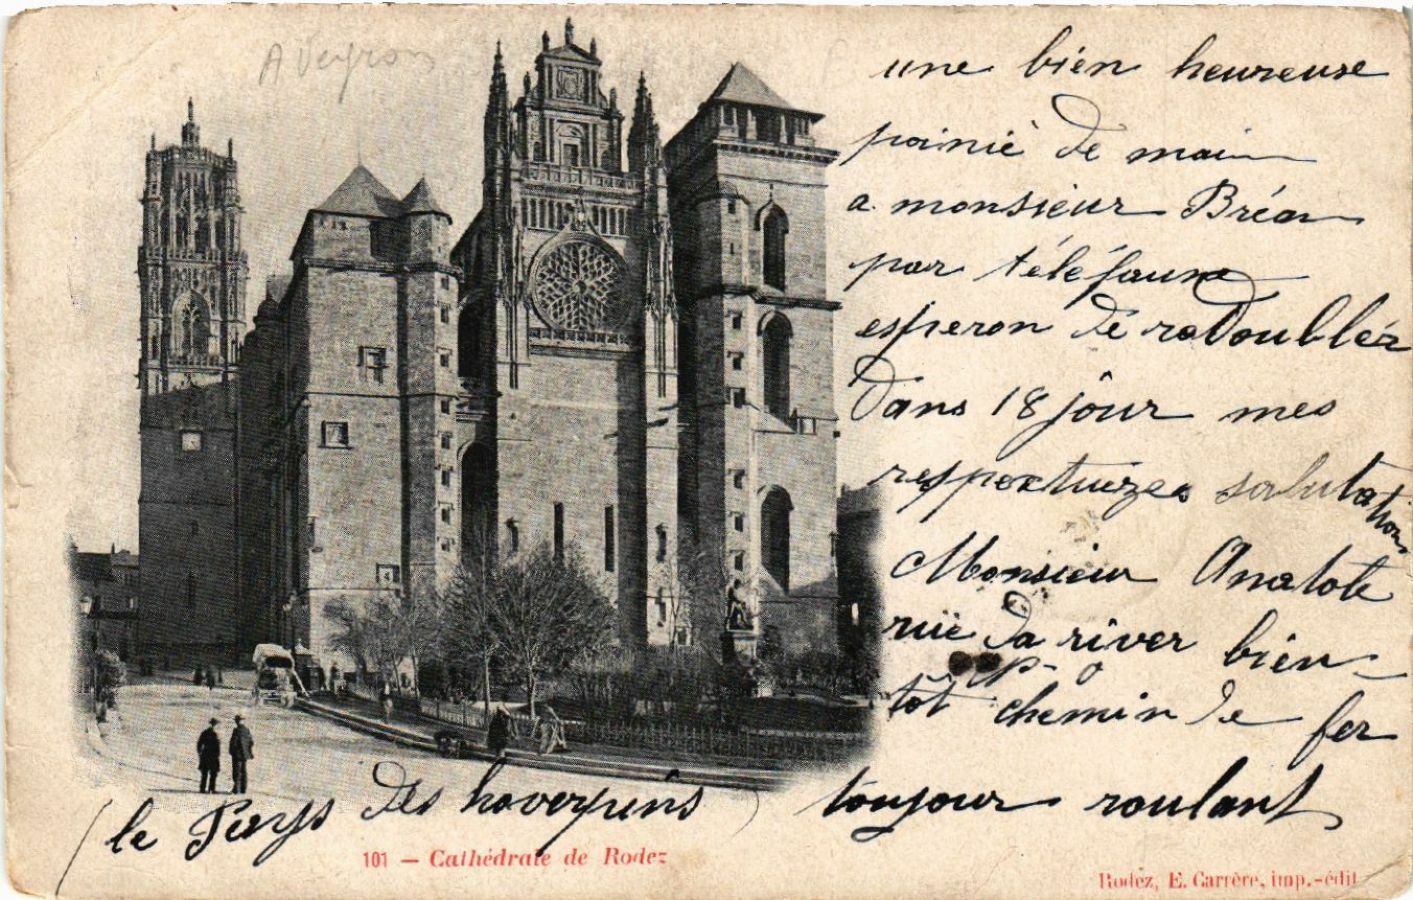 Aveyron
une bien heureuse
poinié de main
a monsieur Bréar
par téléfaune
esperon de redoublér
dans 18 jour mes
respectuizes salutations
Monsieur Anatole
rue da river bien
tôt chemin de fer
toujour roulant
(le Pays des hoverpins)
101 — Cathédrale de Rodez
Rodez, E. Carrère, imp.-édit